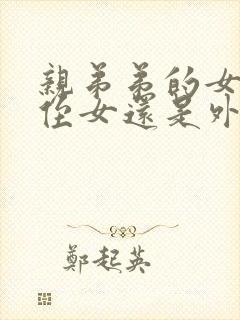 親弟弟的女
侄女還是外
鄭起英